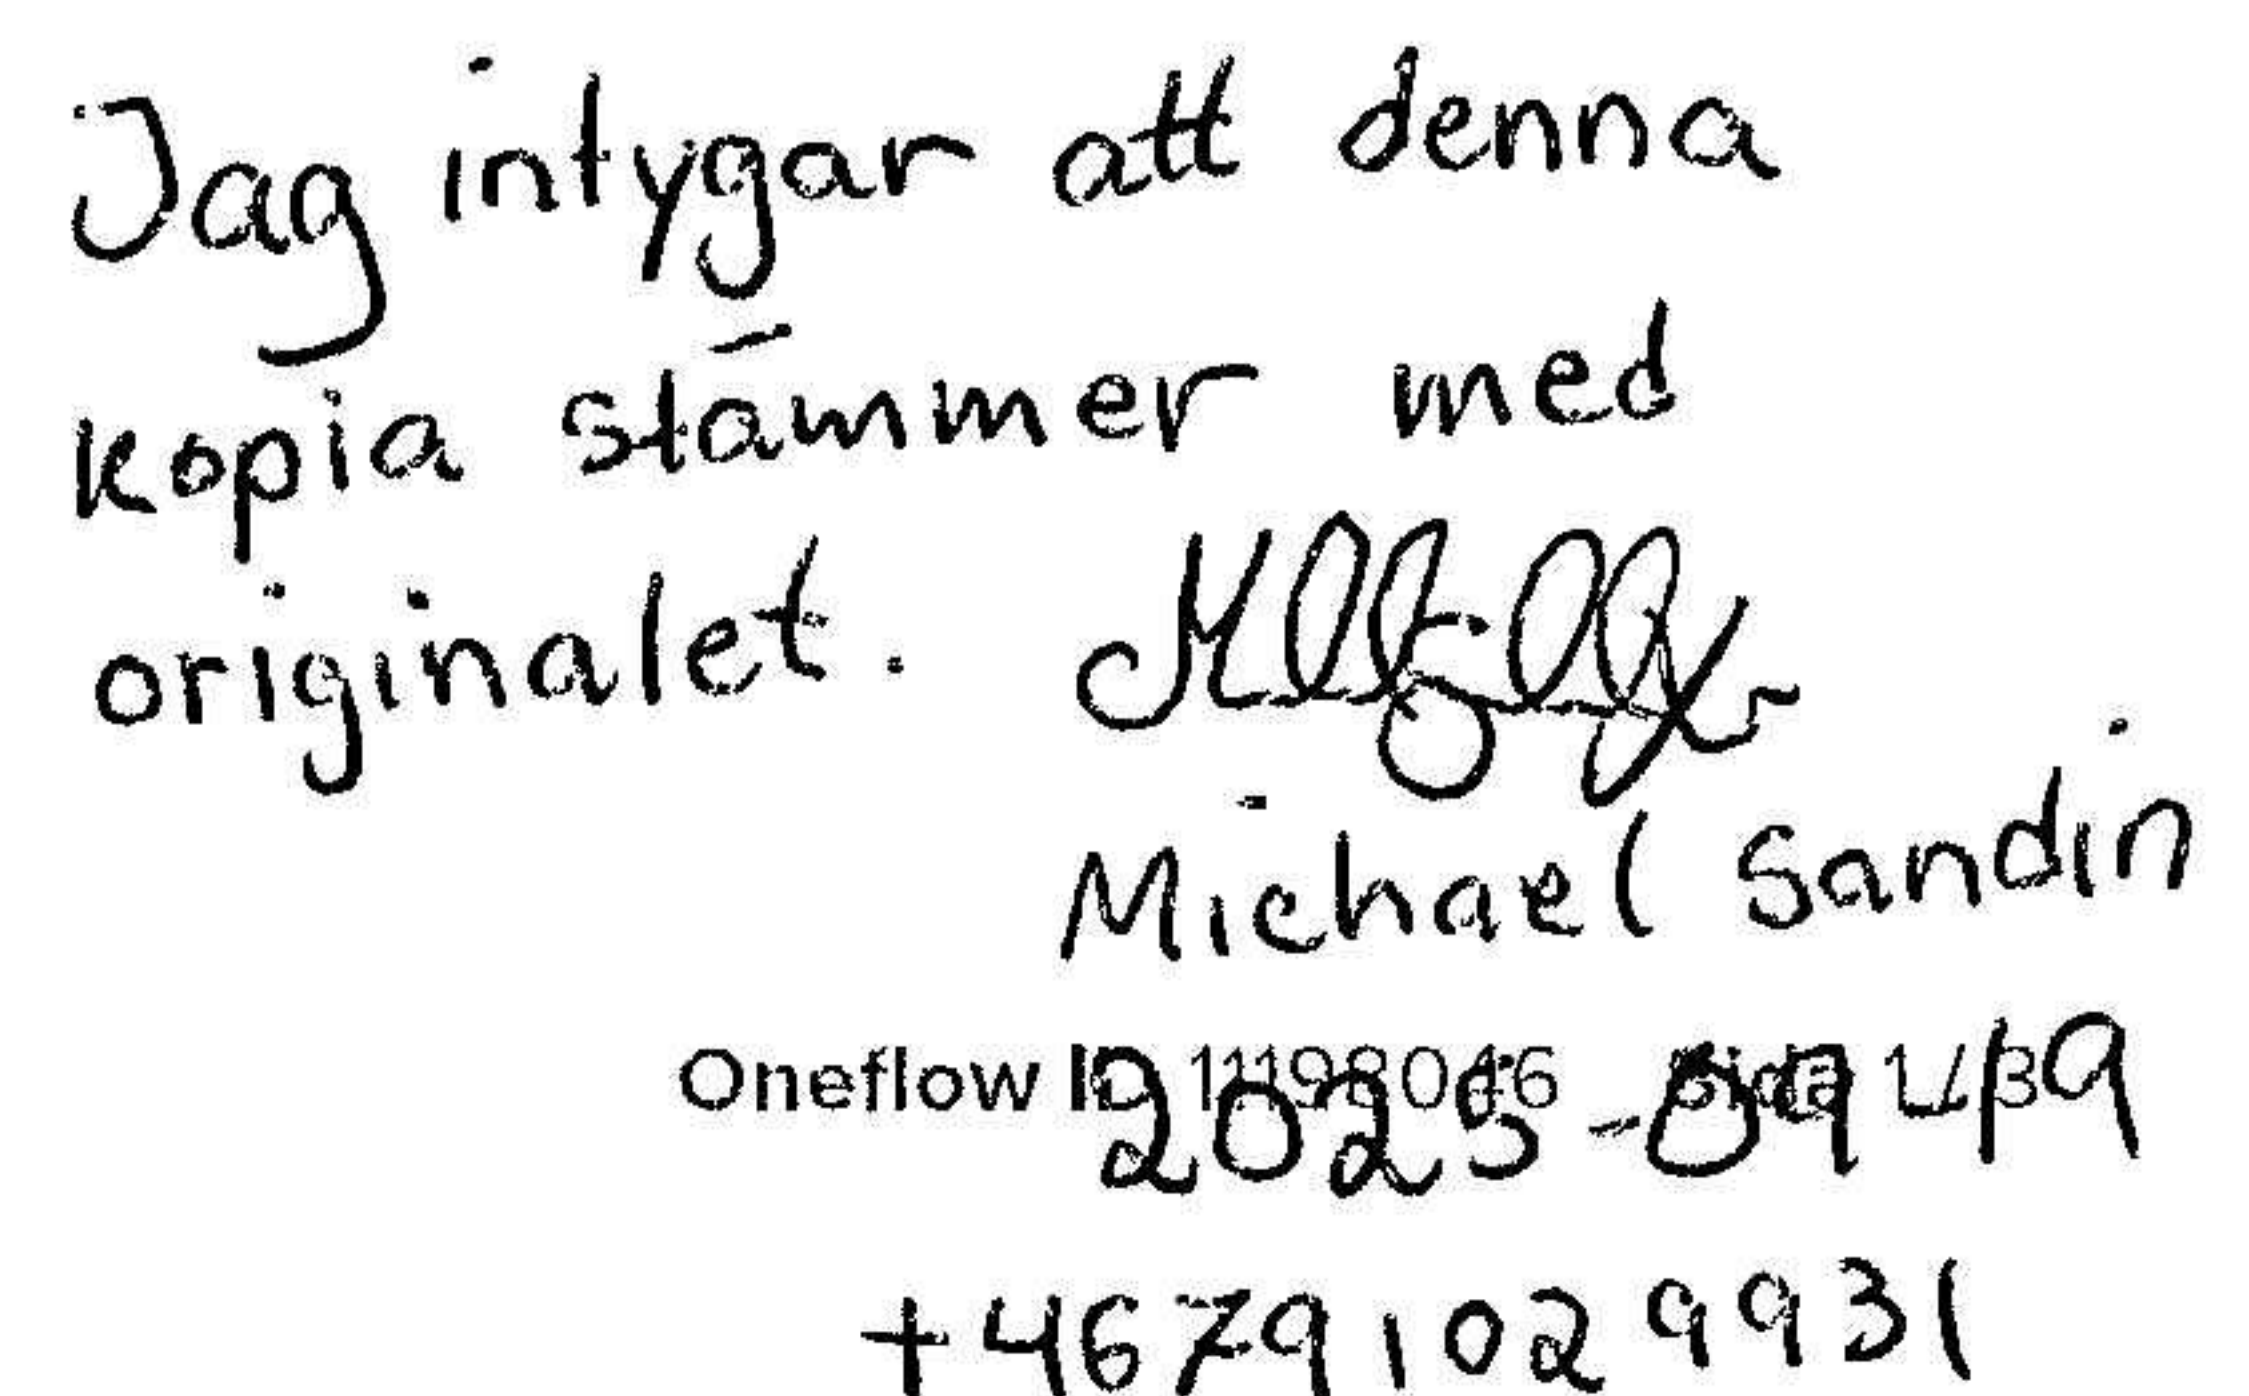 Jag intygar att denna
kopia stämmer med
originalet.
Michael Sandin
Oneflow ID 11198046 Sida 1 / 3
2025-09-19
+46791029931